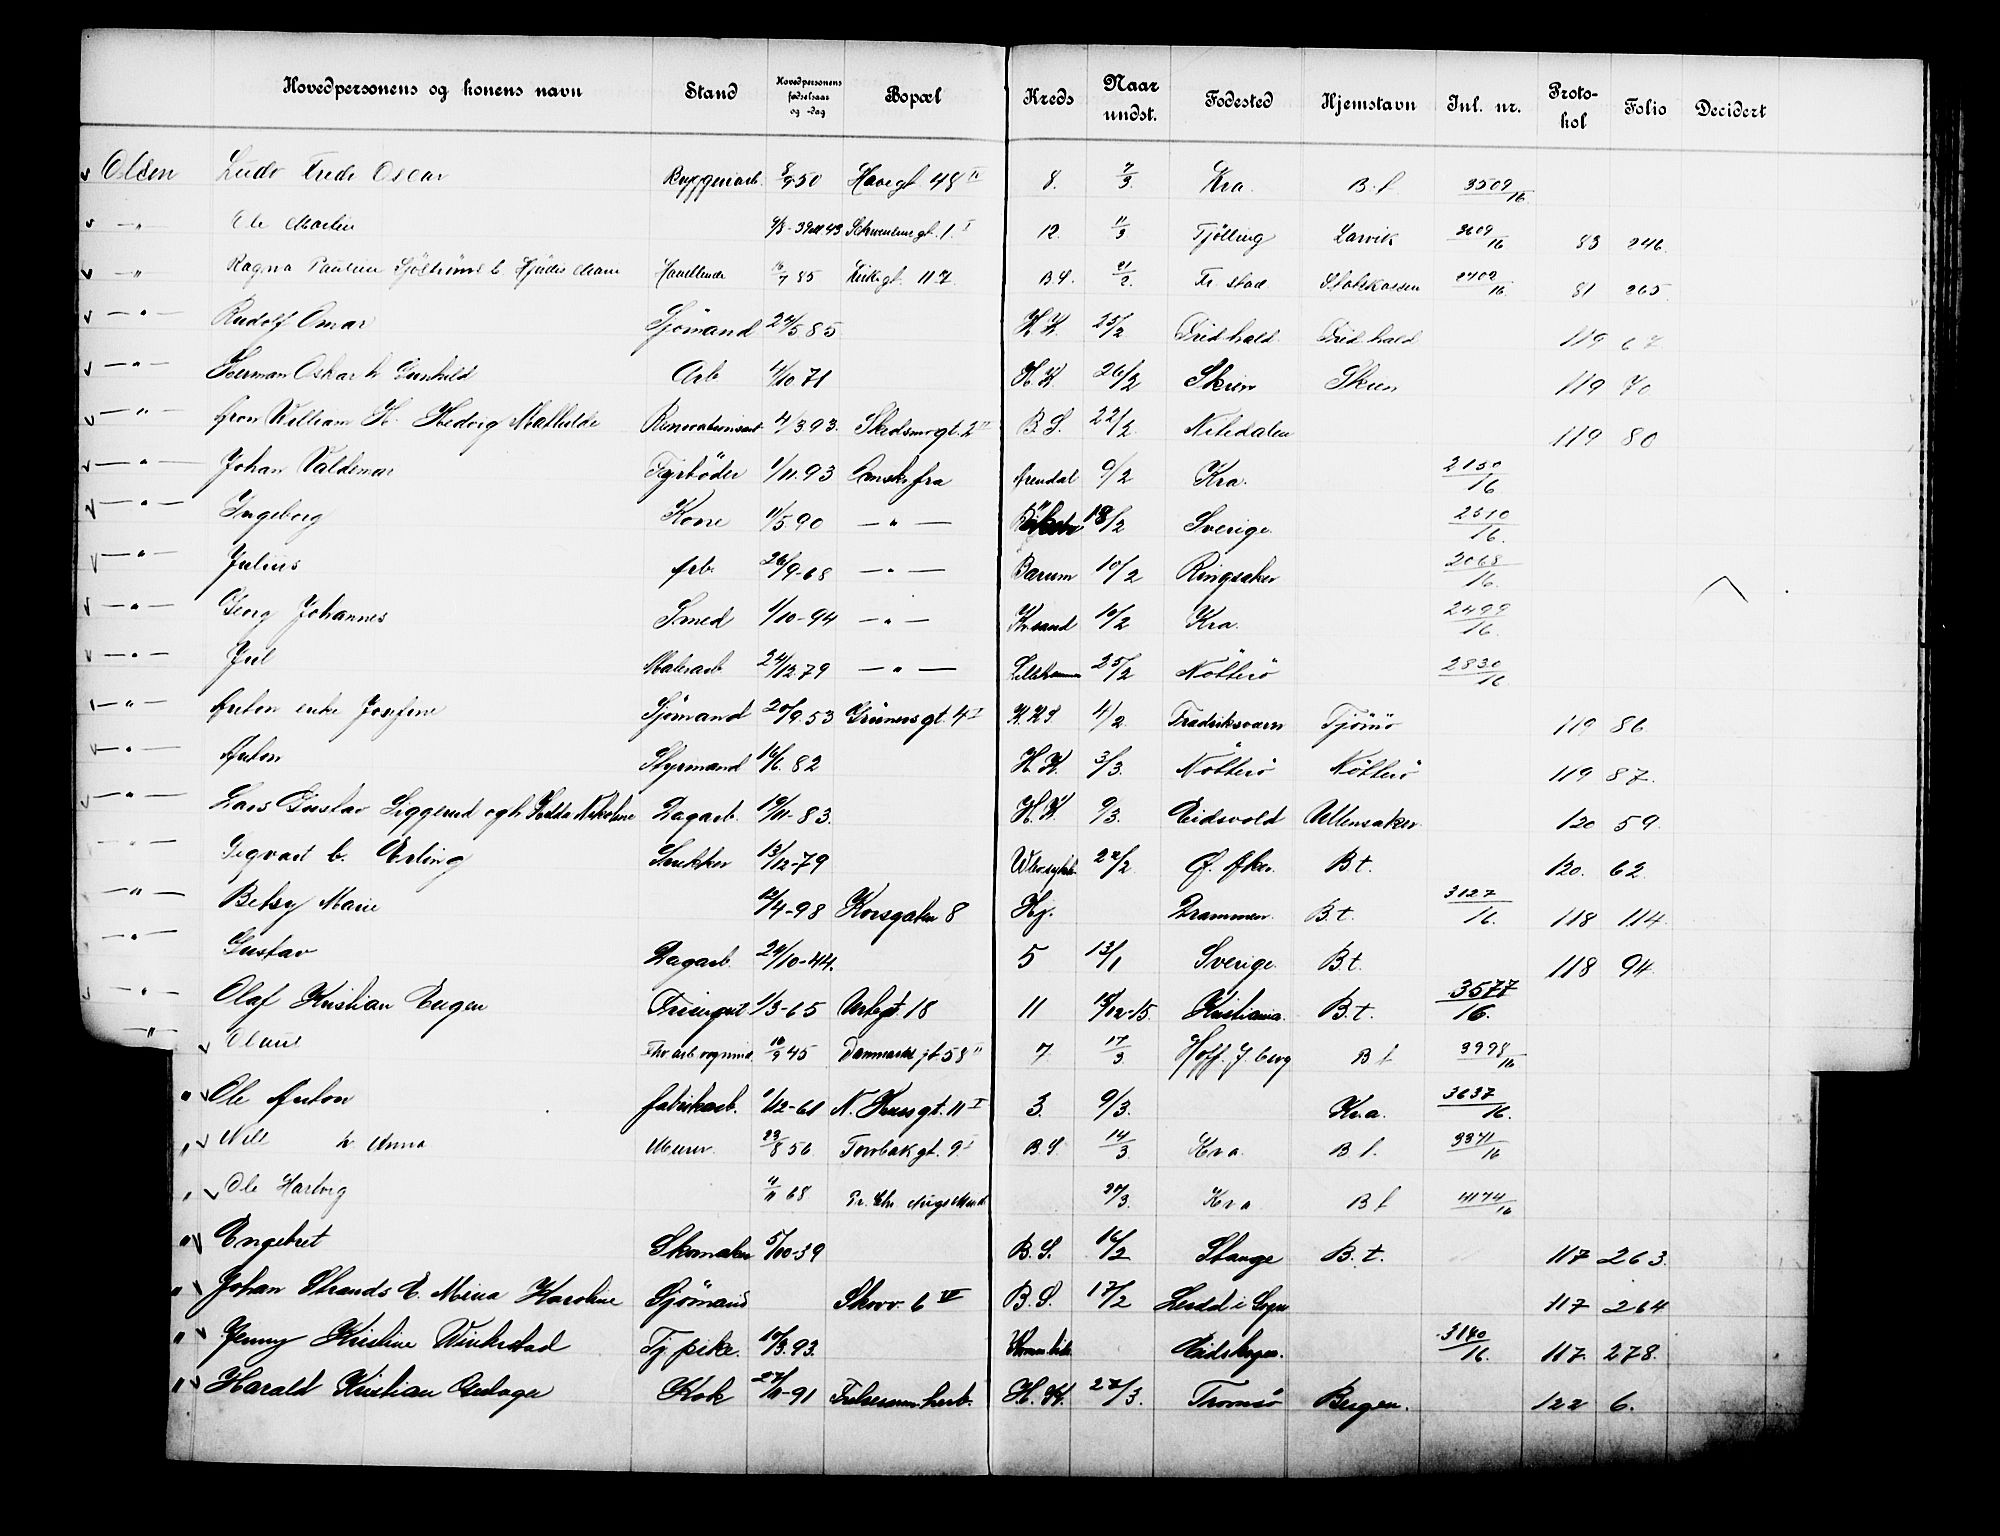 Hovedpersonens og konens navn Stand Hovedpersonens fødselsaar og -dag Bopæl Kreds Naar undst. Fødested Hjemstavn Jnl. nr. Protokol Folio Decidert
Olsen Ludv Fredr Oscar Byggeriarb. 8/9 50 Havegt 48 II 8. 7/3 Kra. B.t. 3509/16
—„ Ole Martin Schweensgt. 1. I 12. 11/3 Tjølling Larvik 3609/16 83 246.
—„ Ragna Pauline 85 Kirkegt. 117. B.S. 21/2 Fr.stad Statskassen 2709/16 81 265.
—„— Rudolf Omar Sjømand 24/5.85. H.K. 25/2 Fridhald. Fridhald 119 67
—„— Herman Oskar h. Gunhild Arb 1/10 71 H.K. 26/2 Skien Skien 119 70
—„— Aron William H. Hedvig Mathilde Renovationsarb 4/3 93. Skedsmogt. 2 II B.S. 22/2 Nitedalen 119 80
—„— Johan Valdemar Fyrbøder 1/11. 93 Ønskes fra Arendal 9/2 Kra. 2150/16
—„— Ingeborg Kone 11/5 90 —„— 18/2 Sverige. 2510/16.
—„— Julius Arb. 26/9-68 —„— Bærum 10/2 Ringsaker 2068/16.
—„— Georg Johannes Smed 1/10-94 —„— Kr.sand 16/2 Kra. 2499/16.
—„— Jul Malerarb 24/12.79 —„— Lillehammer 25/2 Nøtterø 2830/16.
—„— Anton enke Josefine Sjømand 20/9.53 Grünersgt. 4 I H.K.S. 4/2 Fredriksværn Tjømø 119 86
—„— Anton Styrmand 16/6. 82 H.K. 3/3. Nøtterø Nøtterø 119 87.
—„— Lars Gustav Siggerud og h. Hedda Nikoline Dagarb. 19/11-83. H.K. 9/3. Eidsvold Ullensaker 120 59.
—„— Sigvart b. Erling Snekker 13/12-79 Ullev.sykeh. 24/2. Ø. Aker. B.t. 120. 62.
—„— Betsy Marie 12/4-98 Korsgaten 8 Hj. Drammen. B.t. 3127/16. 118 114.
—„— Gustav Dagarb. 24/10-44. 5 13/1 Sverige. B.t. 118 94.
—„— Olaf Kristian Eugen 1/3-65 Urtegt 18 11 18/12-15. Kristiania. B.t. 3577/16.
—„— Olaus 10/9 45 Danmarks gt 58 II 7. 17/3 Hoff. J.berg B.t. 3998/16
„ Ole Anton Fabrikarb. 1/12-61 N. Hursgt. 11 I 3. 9/3. Kra. 3637/16.
„ Will h. Anna Murer. 23/8 56. Torvbakgt. 9. I B.S. 14/3. Kra. B.t. 3341/16
„ Ole Hartvig 11/11 68 Pr. Chr. Augs Mind. 20/3. Kra B.t 4174/16
„ Engebret Skomaker 5/10-39 B.S. 16/2 Stange B.t. 117 263.
„ Johan Strands E. Mina Karoline Sjømand Skovv. 6 IV B.S. 17/2 Lerdal i Sogn 117 264
„ Jenny Kristine Tj.pike. 10/3.93. Eidskogen. 3140/16. 117. 278.
„ Harald Kristian Kok 27/11-91 Frelsesarm. herb. H.K. 27/3. Tromsø Bergen. 122 6.